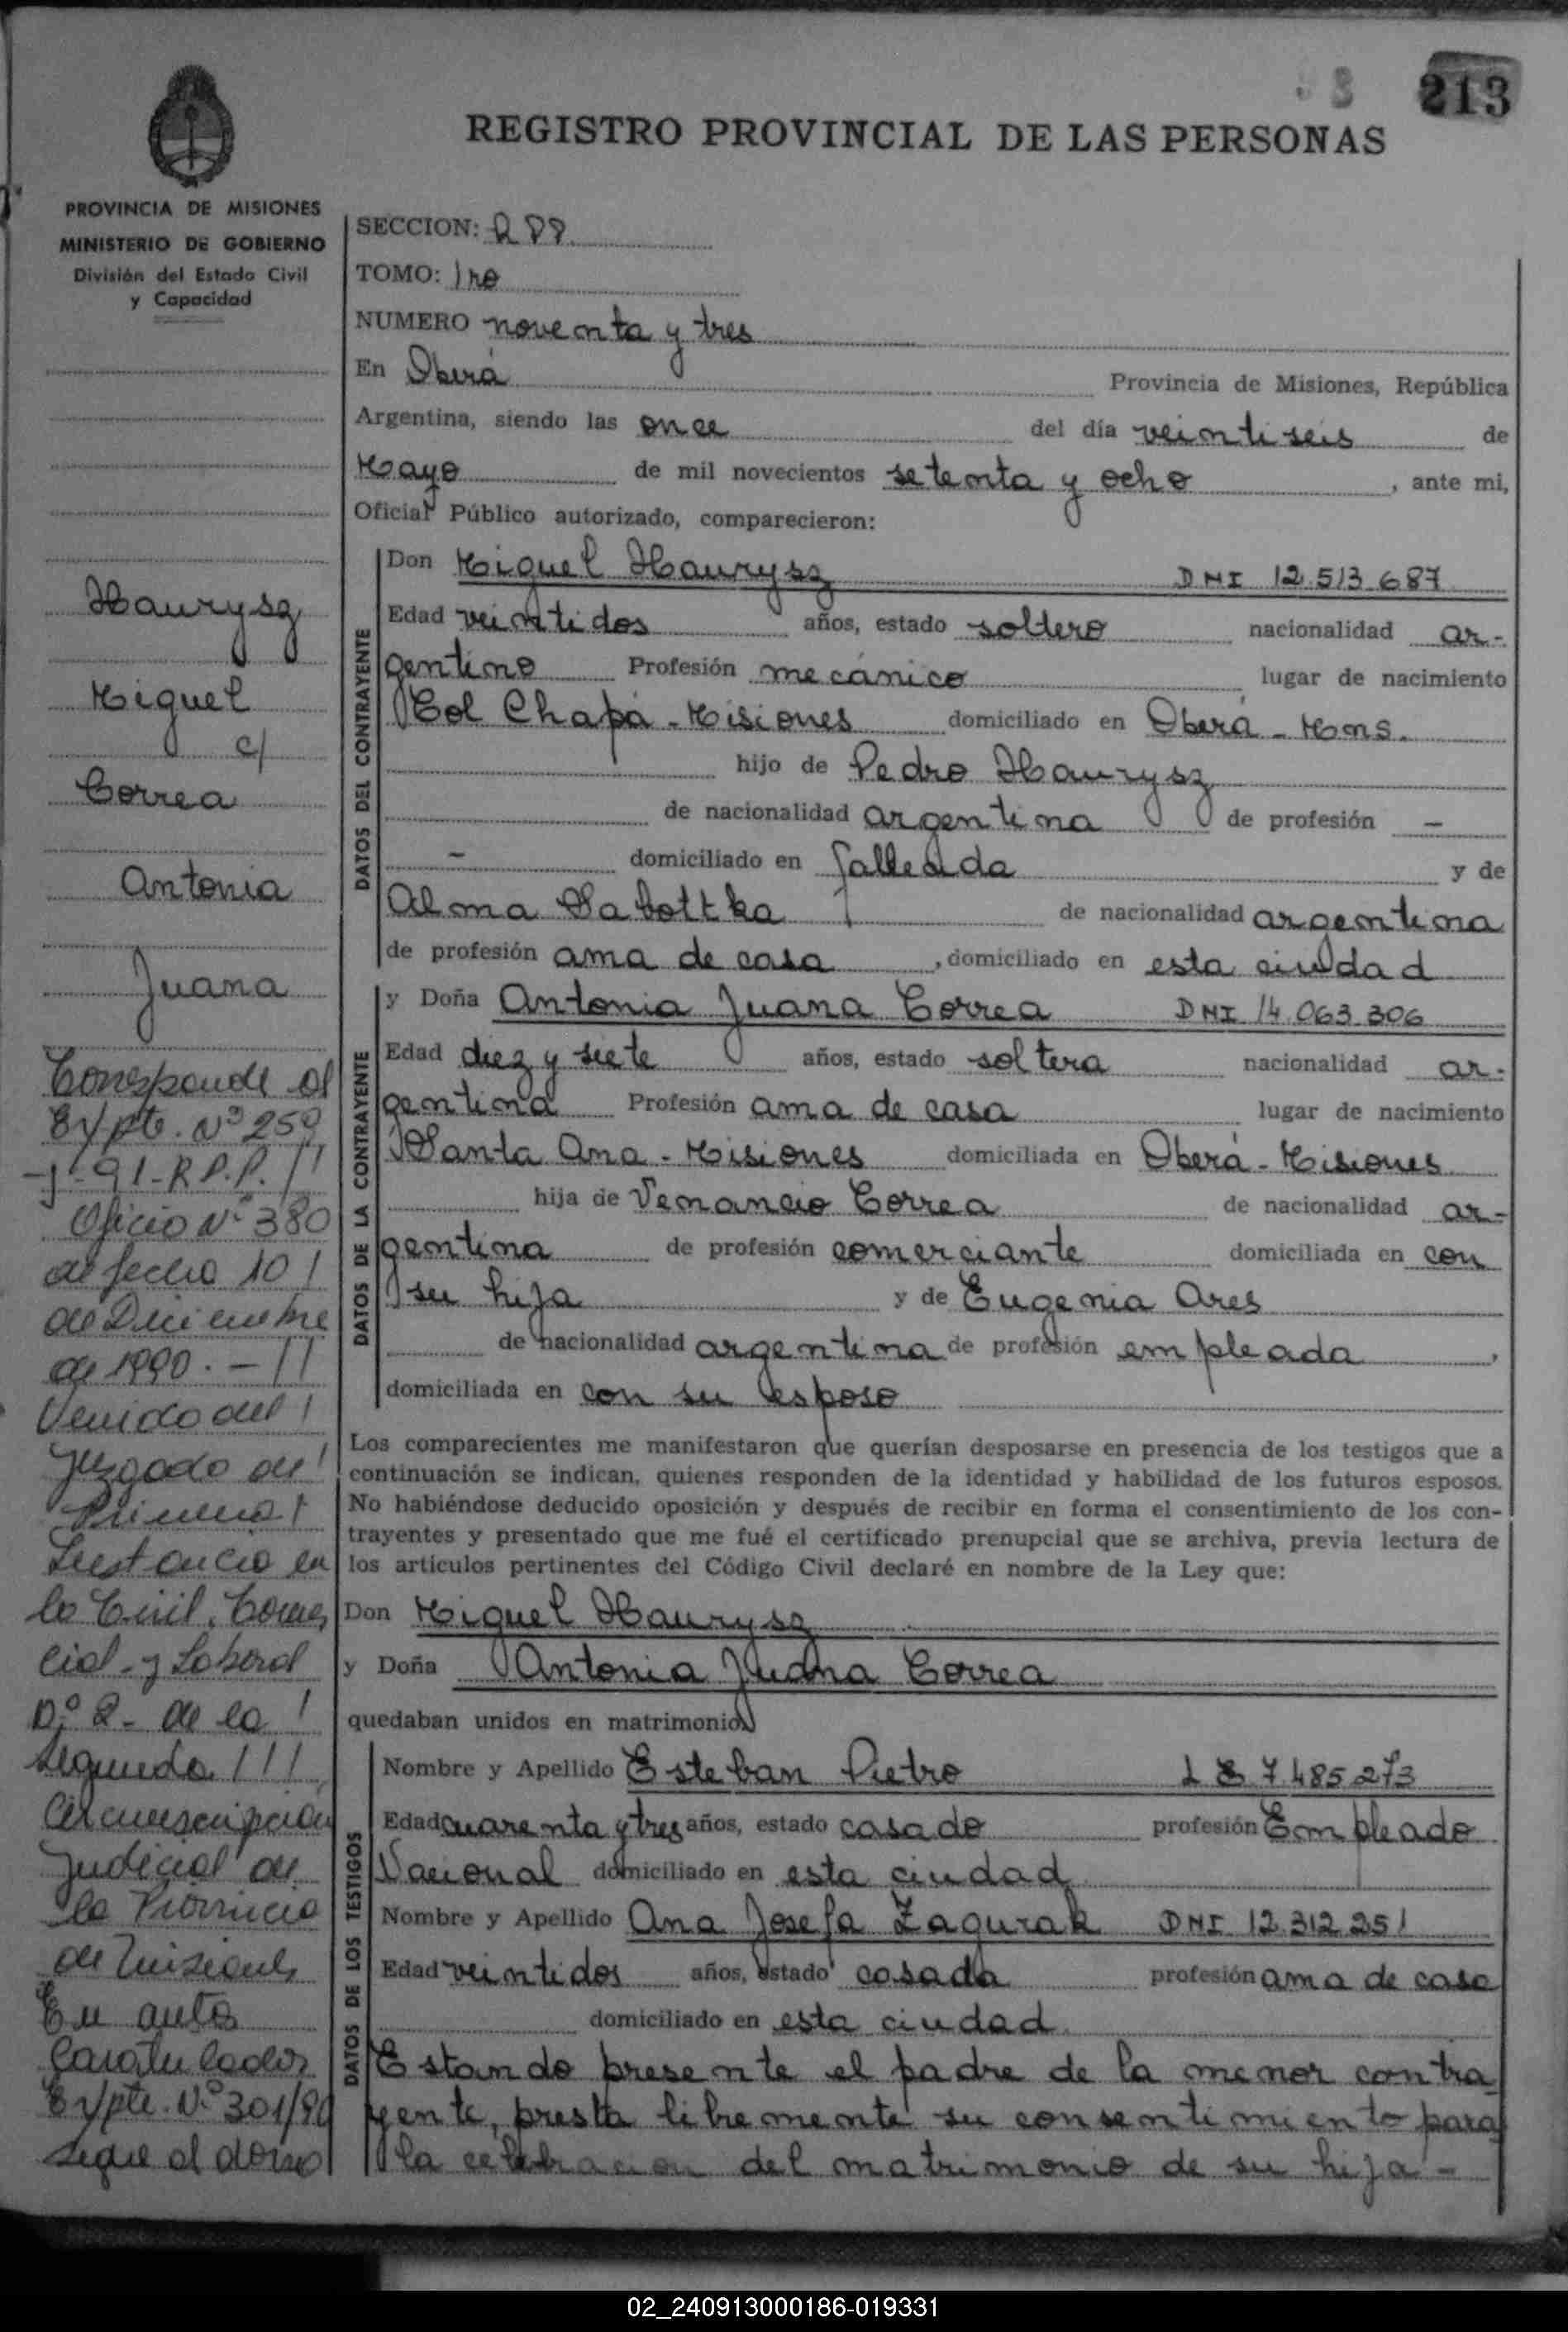 213
REGISTRO PROVINCIAL DE LAS PERSONAS
PROVINCIA DE MISIONES
MINISTERIO DE GOBIERNO
División del Estado Civil
y Capacidad
Haurysz
Miguel
c/
Correa
Antonia
Juana
Corresponde al
Expte. Nº 259
-J-91-R.P.P.//
Oficio Nº 380
de fecha 10/
de Diciembre
de 1990.-//
Venido del/
Juzgado de/
Primera/
Instancia en
lo Civil, Comer
cial-y Laboral
Nº 2- de la/
Segunda///
Circunscripción
Judicial de
la Provincia
de Misiones
En autos
Caratulados
Expte. Nº 301/90
sigue al dorso
SECCION: R P P.
TOMO: 1ro
NUMERO noventa y tres
En Oberá Provincia de Misiones, República
Argentina, siendo las once del día veintiseis de
Mayo de mil novecientos setenta y ocho, ante mi,
Oficial Público autorizado, comparecieron:
DATOS DEL CONTRAYENTE
Don Miguel Haurysz DNI 12.513.687
Edad veintidos años, estado soltero nacionalidad ar-
gentino Profesión mecánico lugar de nacimiento
Col Chapá - Misiones domiciliado en Oberá - Mnes.
hijo de Pedro Haurysz
de nacionalidad argentina de profesión -
- domiciliado en
y de
Alma Sabottka de nacionalidad argentina
de profesión ama de casa, domiciliado en esta ciudad
DATOS DE LA CONTRAYENTE
y Doña Antonia Juana Correa DNI 14.063.306
Edad diez y siete años, estado soltera nacionalidad ar-
gentina Profesión ama de casa lugar de nacimiento
Santa Ana - Misiones domiciliada en Oberá - Misiones
hija de Venancio Correa de nacionalidad ar-
gentina de profesión comerciante domiciliada en con
su hija y de Eugenia Ares
de nacionalidad argentina de profesión empleada,
domiciliada en con su esposo
Los comparecientes me manifestaron que querían desposarse en presencia de los testigos que a
continuación se indican, quienes responden de la identidad y habilidad de los futuros esposos.
No habiéndose deducido oposición y después de recibir en forma el consentimiento de los con-
trayentes y presentado que me fué el certificado prenupcial que se archiva, previa lectura de
los artículos pertinentes del Código Civil declaré en nombre de la Ley que:
Don Miguel Haurysz
y Doña Antonia Juana Correa
quedaban unidos en matrimonio
DATOS DE LOS TESTIGOS
Nombre y Apellido Esteban Pietro L E 7.485.273
Edad cuarenta y tres años, estado casado profesión Empleado
Nacional domiciliado en esta ciudad
Nombre y Apellido Ana Josefa Zagurak DNI 12.312.251
Edad veintidos años, estado casada profesión ama de casa
domiciliado en esta ciudad.
Estando presente el padre de la menor contra
yente, presta libremente su consentimiento para
la celebración del matrimonio de su hija -
02_240913000186-019331